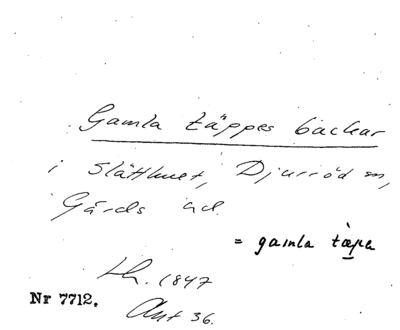 Gamla täppes backar
i Slätthuet, Djurröd sn,
Gärds hd.
= gamla tæpe
Lh. 1847
Nr 7712.
Akt 36.